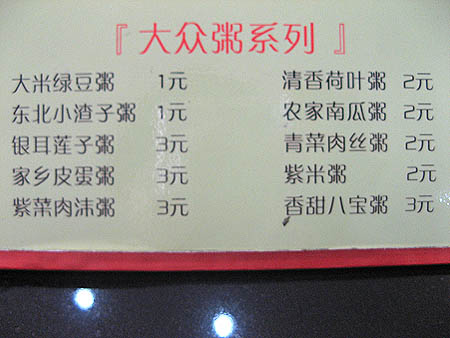 『 大众粥系列 』
大米绿豆粥 1元 清香荷叶粥 2元
东北小渣子粥 1元 农家南瓜粥 2元
银耳莲子粥 3元 青菜肉丝粥 2元
家乡皮蛋粥 3元 紫米粥 2元
紫菜肉沫粥 3元 香甜八宝粥 3元